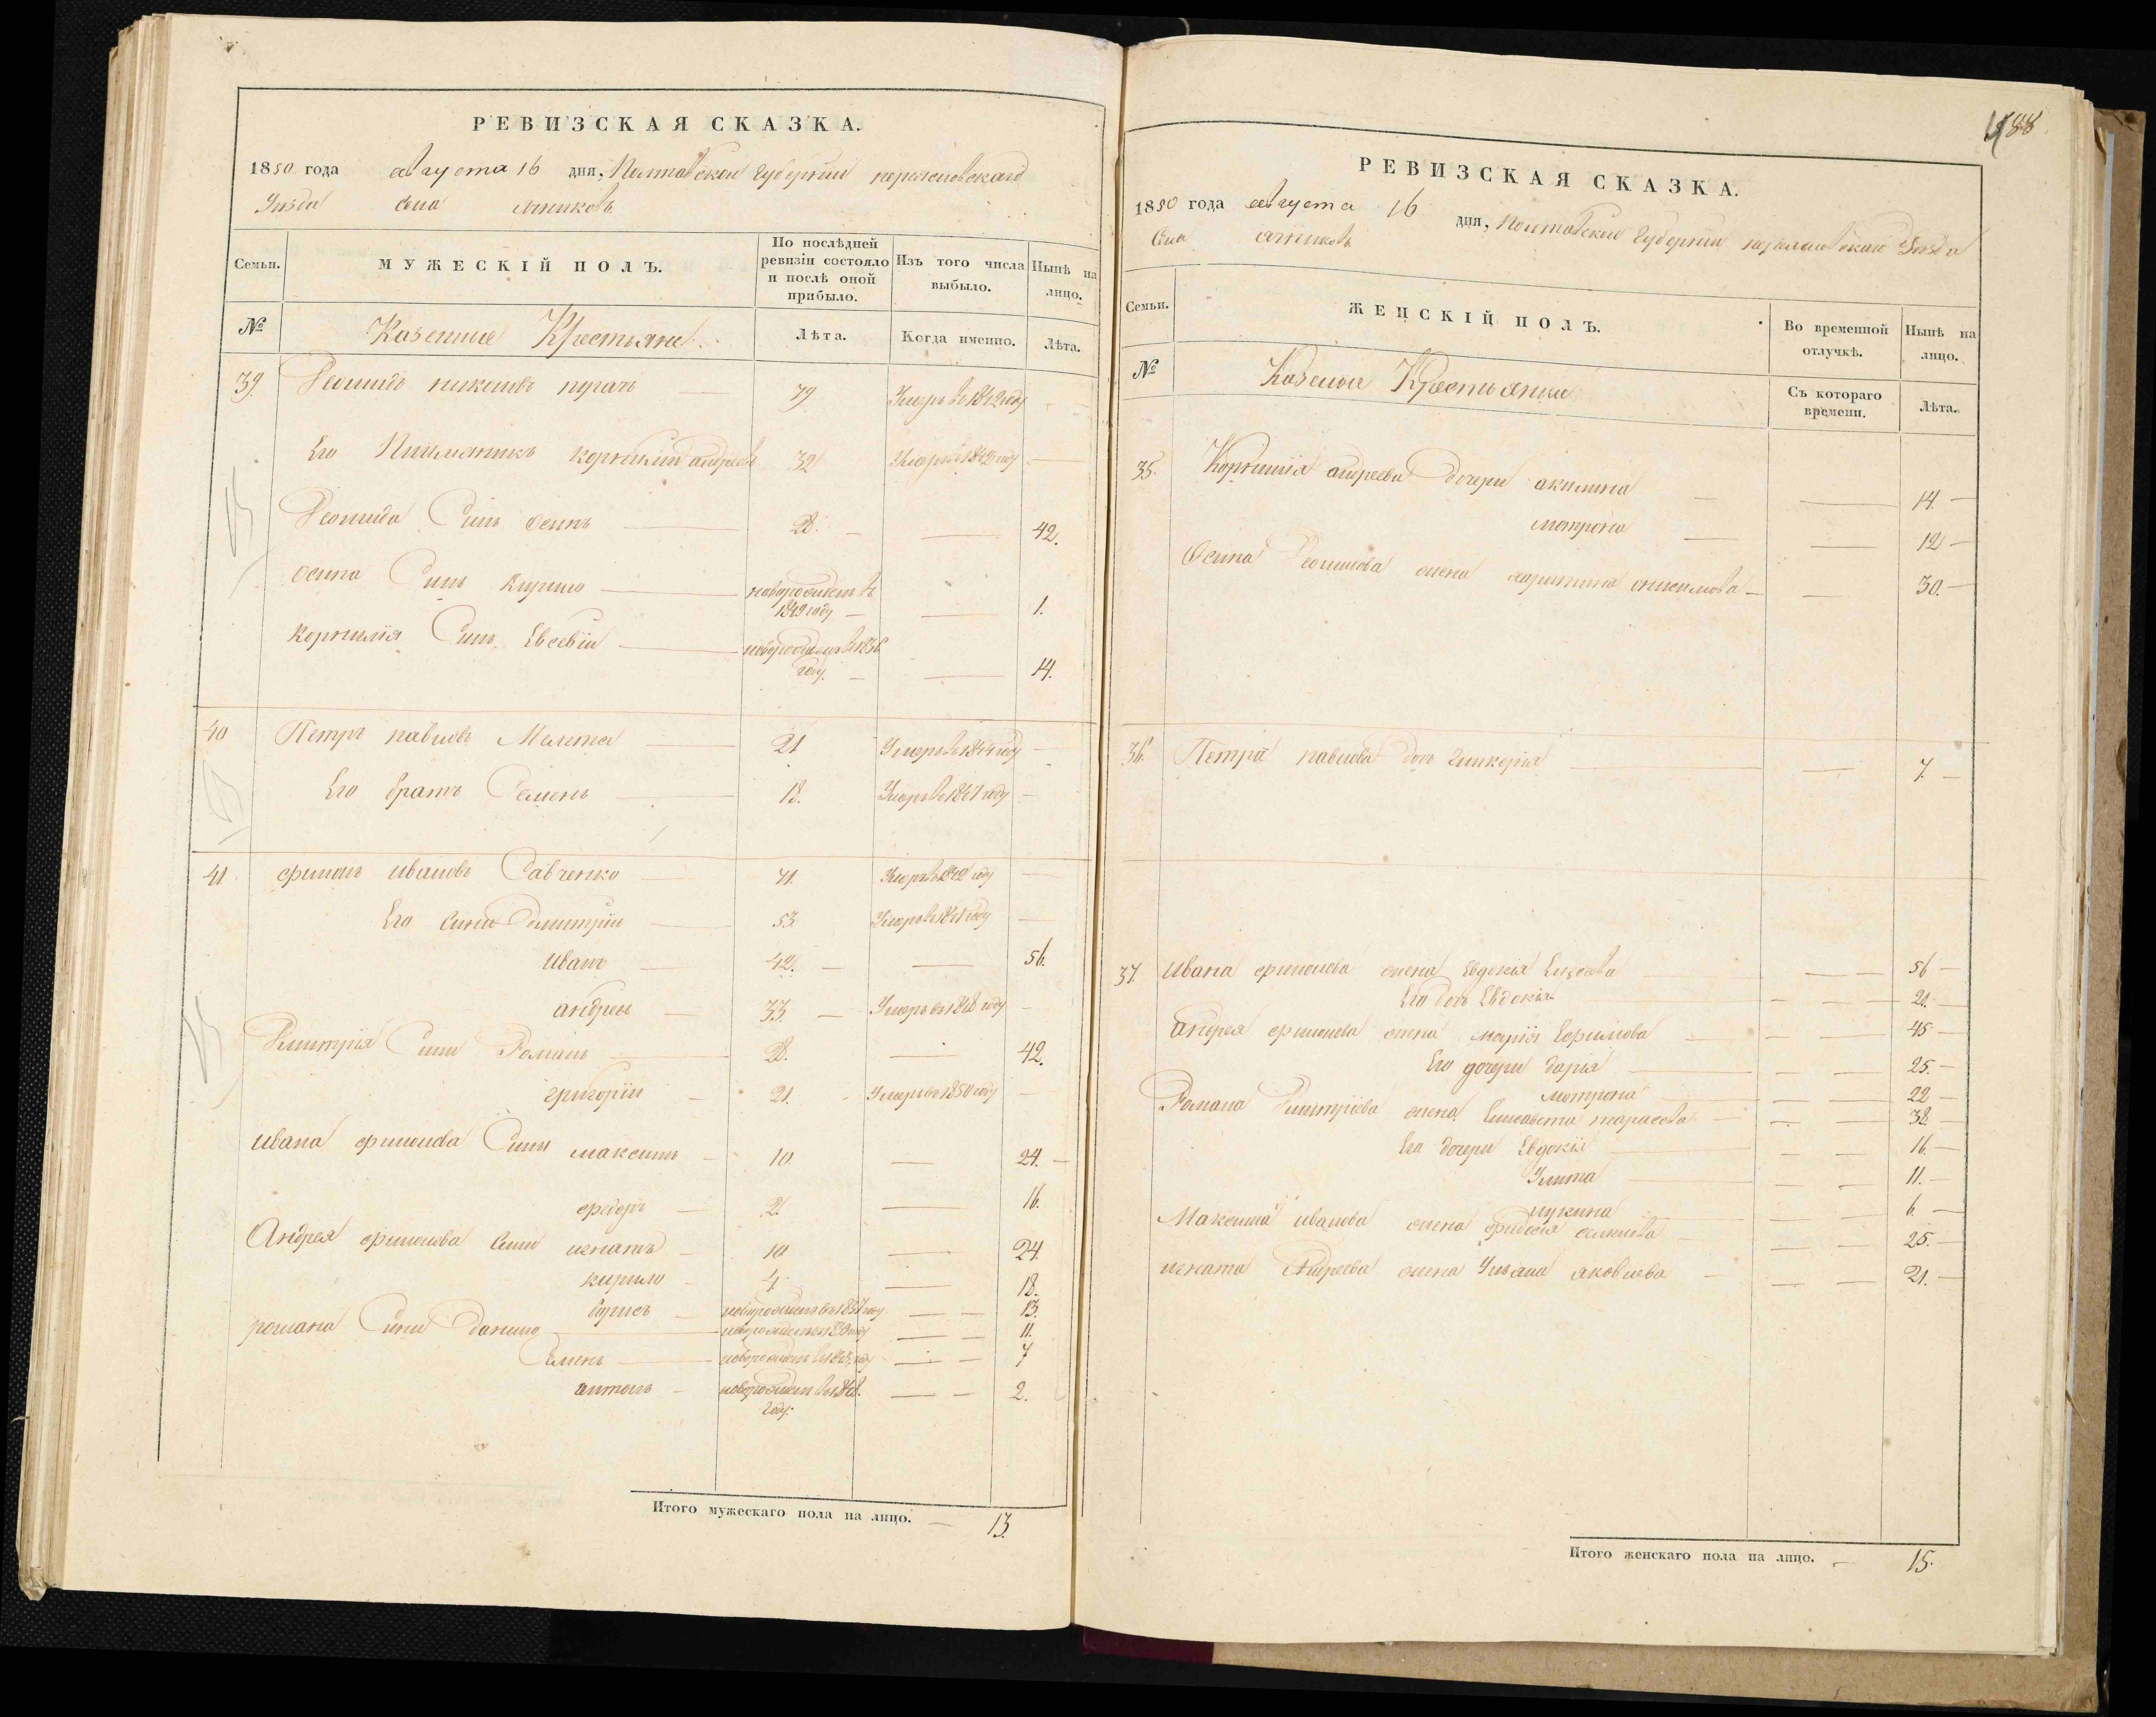 488
РЕВИЗСКАЯ СКАЗКА.
1850 года августа 16 дня, Полтавской Губернии
Уезда Села
Семьи. МУЖЕСКІЙ ПОЛЪ. По послѣдней ревизіи состояло и послѣ оной прибыло. Изъ того числа выбыло. Нынѣ на лицо.
№ Казенние Крестьяне Лѣта. Когда именно. Лѣта.
39. Леонидъ пугачь 79 Умеръ в 1842 году
Его андреевъ 32 Умеръ в 1842 году
Леонида Синъ осипъ 28. 42.
осипа Синъ Кирило новорожденъ въ 1849 году 1.
Корнилія Синъ Евсевій новорожденъ в 1836 году. 14.
40 Петръ павловъ Малета 21 Умеръ в 1844 году
Его братъ Семенъ 18. Умеръ в 1847 году
41. филонъ ивановъ Савченко 71. Умеръ в году
Его сини дмитрій 53. Умеръ в 1841 году
иванъ 42. 56.
андрей 33. Умеръ въ 1848 году
Дмитрія Сини Романъ 28. 42.
григорій 21. Умеръ въ 1850 году
ивана филонова Сини максимъ 10. 24.
федоръ 2. 16.
Андрея филонова Сини игнатъ 10 24
кирило 4 18.
борисъ новорожденъ въ 1837 году 13.
романа Сини данило новорожденъ 1839 году 11.
Семенъ новорожденъ в 1843 году 7
антонъ новорожденъ в 1848. году. 2.
Итого мужескаго пола на лицо. 13.
РЕВИЗСКАЯ СКАЗКА.
1850 года августа 16 дня, Полтавской Губернии Уезда
Села
Семьи. ЖЕНСКІЙ ПОЛЪ. Во временной отлучкѣ. Нынѣ на лицо.
№ Казенние Крестьянки Съ котораго времени. Лѣта.
35. Корнилія андреева дочери акилина 14.
мотрона 12
Осипа Леонидова жена харитина онисимова 30.
36. Петра павлова дочь гликерія 7.
37. ивана филонова жена Евдокія 56
Его дочь Евдокія 21.
андрея филонова жена марія Ефимова 45
Его дочери дарія 25.
мотрона 22
Романа Дмитріева жена Елисавета тарасова 38.
Его дочери Евдокія 16.
Улита 11.
лукина 6
Максима иванова жена федосія 25.
игната Андреева жена Уляна яковлева 21.
Итого женскаго пола на лицо. 15.